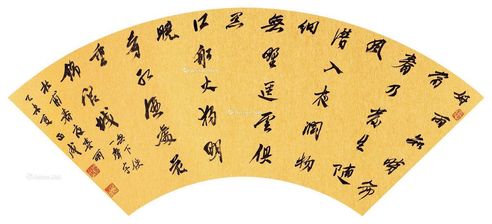 好雨知時節
當
春乃發生隨
風
潛入夜潤物
細
無野徑雲俱
黑
江船火獨明
曉
看紅濕處花
重
錦官城
杜甫春夜喜雨